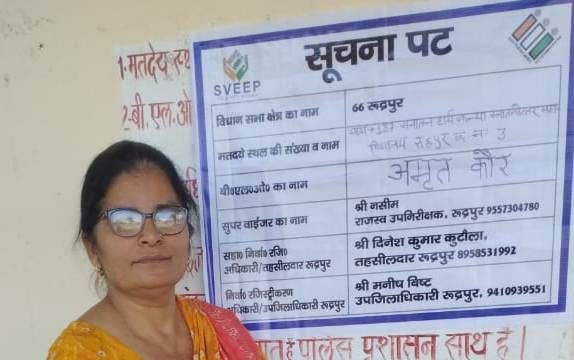 सूचना पट
SVEEP
1- मतदेय
2-बी.एल.ओ
विधान सभा क्षेत्र का नाम
66 रूद्रपुर
मतदेय स्थल की संख्या व नाम
बी०एल०ओ० का नाम
अमृत कौर
सुपर वाईजर का नाम
श्री नसीम
राजस्व उपनिरीक्षक, रूद्रपुर 9557304780
सहा० निर्वा० रजि०
अधिकारी/तहसीलदार रूद्रपुर
श्री दिनेश कुमार कुटौला,
तहसीलदार रूद्रपुर 8958531992
निर्वा० रजिस्ट्रीकरण
अधिकारी/उपजिलाधिकारी रूद्रपुर
श्री मनीष बिष्ट
उपजिलाधिकारी रूद्रपुर, 9410939551
प्रशासन साथ है।